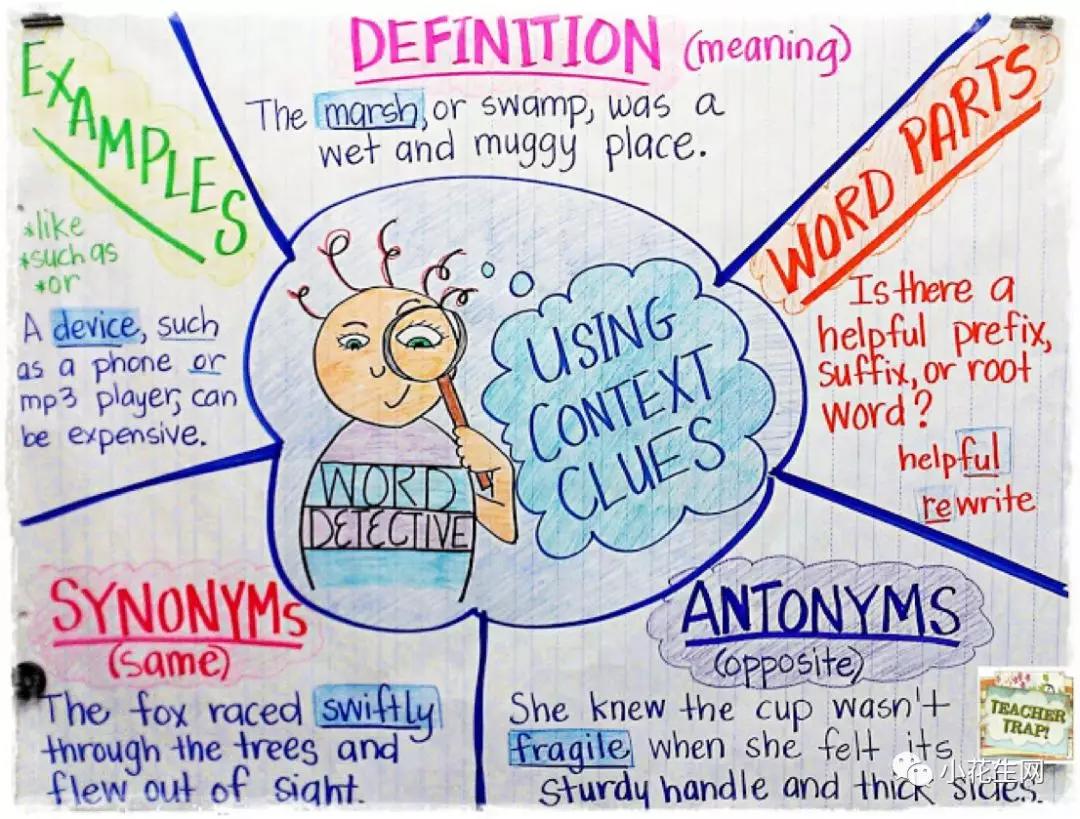 DEFINITION (meaning)
The marsh, or swamp, was a
wet and muggy place.
EXAMPLES
*like
*such as
*or
A device, such
as a phone or
mp3 player, can
be expensive.
WORD PARTS
Is there a
helpful prefix,
suffix, or root
word?
helpful
rewrite
USING
CONTEXT
CLUES
WORD
DETECTIVE
SYNONYMS
(same)
The fox raced swiftly
through the trees and
flew out of sight.
ANTONYMS
(opposite)
She knew the cup wasn't
fragile when she felt its
sturdy handle and thick sides.
TEACHER
TRAP!
小花生网